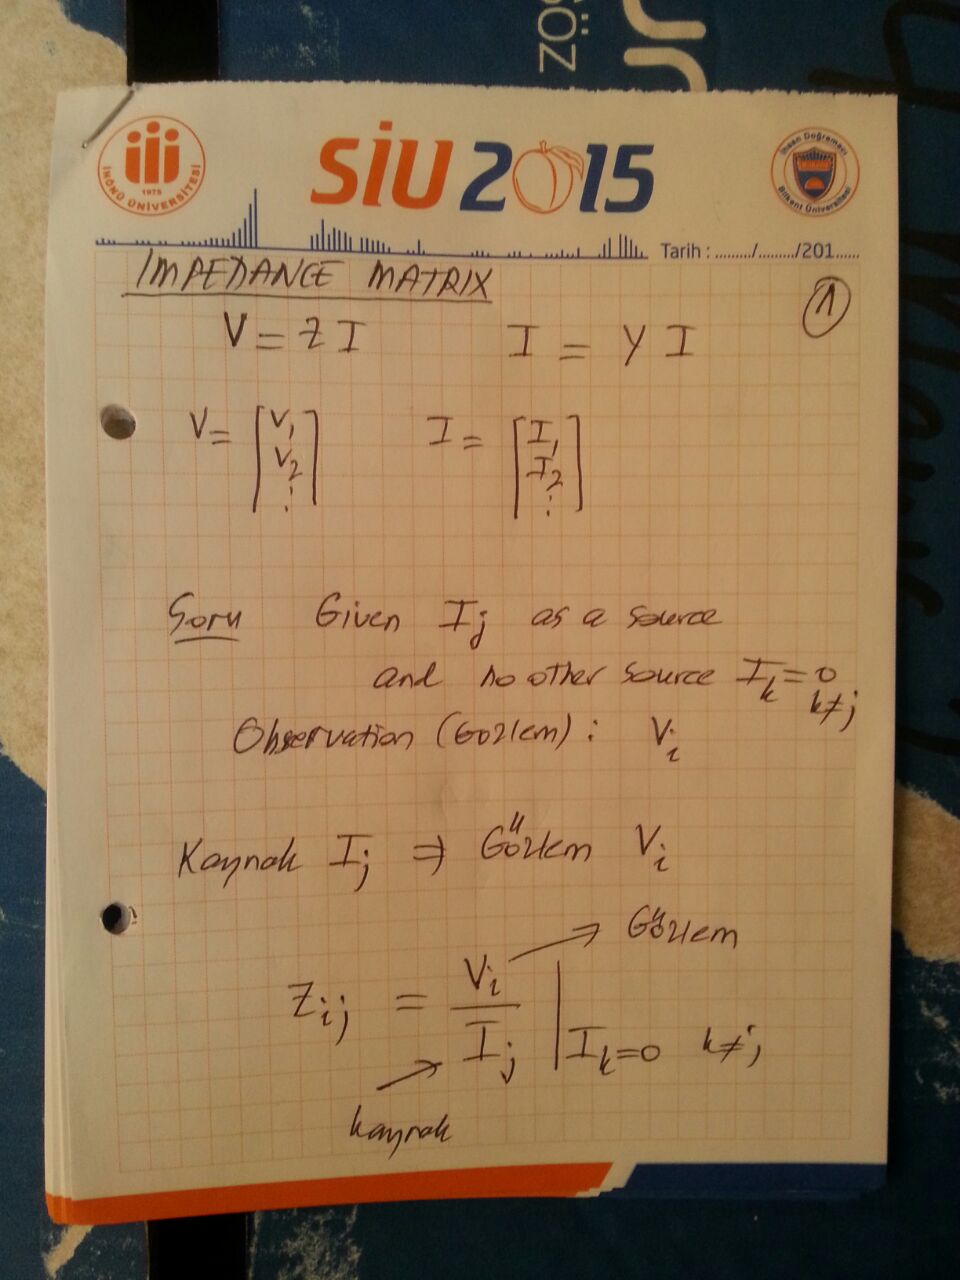 SÖZ
İNÖNÜ ÜNİVERSİTESİ
1975
SİU 2015
İhsan Doğramacı
Bilkent Üniversitesi
Tarih : ........./........./201......
IMPEDANCE MATRIX
1
V = Z I I = Y I
V = [V1 V2 ⋮] I = [I1 I2 ⋮]
Soru Given Ij as a source
and no other source Ik = 0
k≠j
Observation (Gozlem) : Vi
Kaynak Ij ⇒ Gözlem Vi
Gözlem
Zij = Vi / Ij | Ik=0 k≠j
kaynak